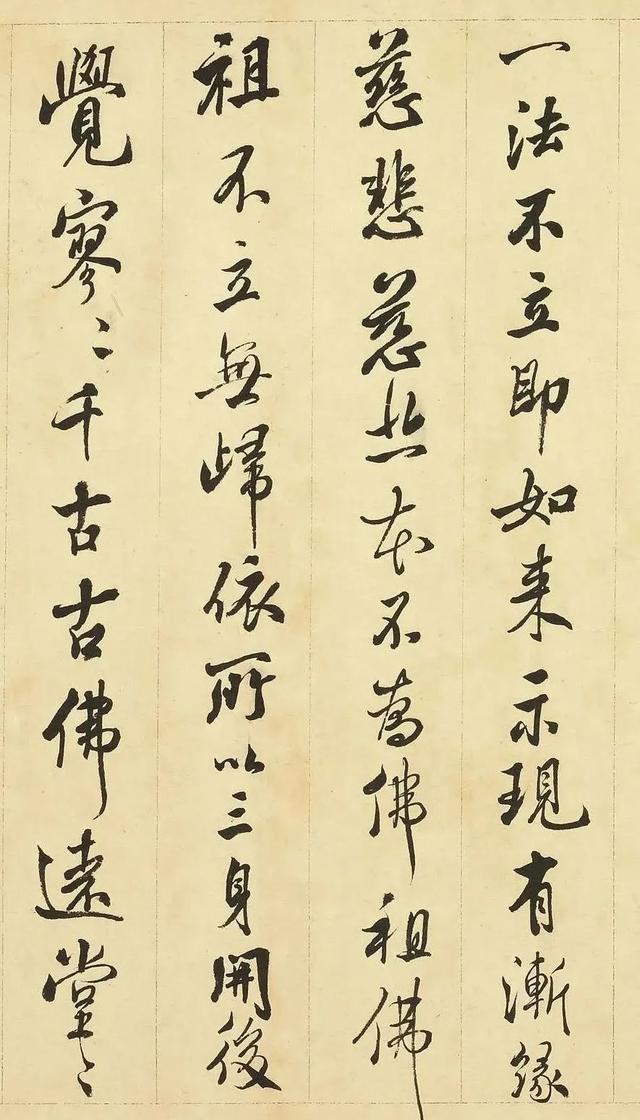 一法不立即如來示現有漸緣
慈悲慈悲本不為佛祖佛
祖不立無歸依所以三身開後
覺寥〻千古古佛遠堂〻